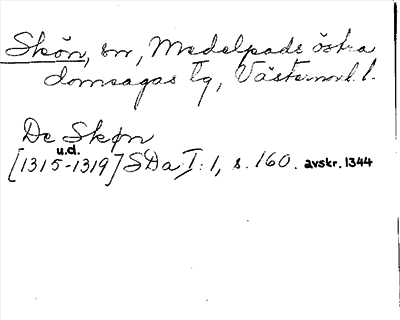 Skön, sn, Medelpads östra
domsagas tg, Västernorrl. l.
De Skøn
u.d.
[1315-1319] SDa I:1, s. 160. avskr. 1344